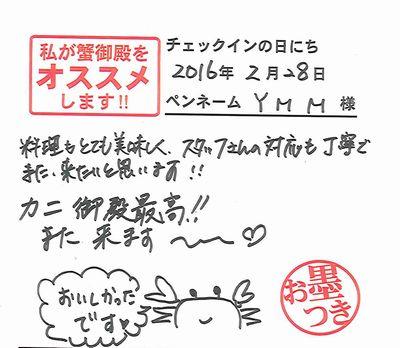 私が蟹御殿を
オススメ
します!!
チェックインの日にち
2016年 2月28日
ペンネーム YMM 様
料理もとても美味しく、スタッフさんの対応も丁寧で
また、来たいと思います!!
カニ御殿最高!!
また 来ます 〜〜♡
おいしかった
です♡
お墨つき